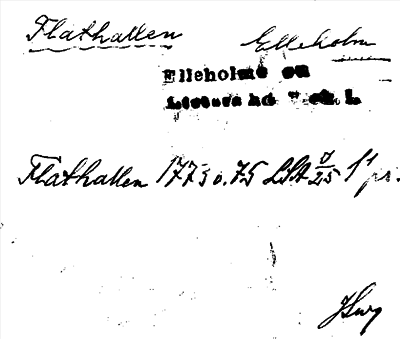 Flathallen Elleholm
Elleholms sn
Listers hd
Flathallen 1773 o. 75 LSA 25 11 pr.